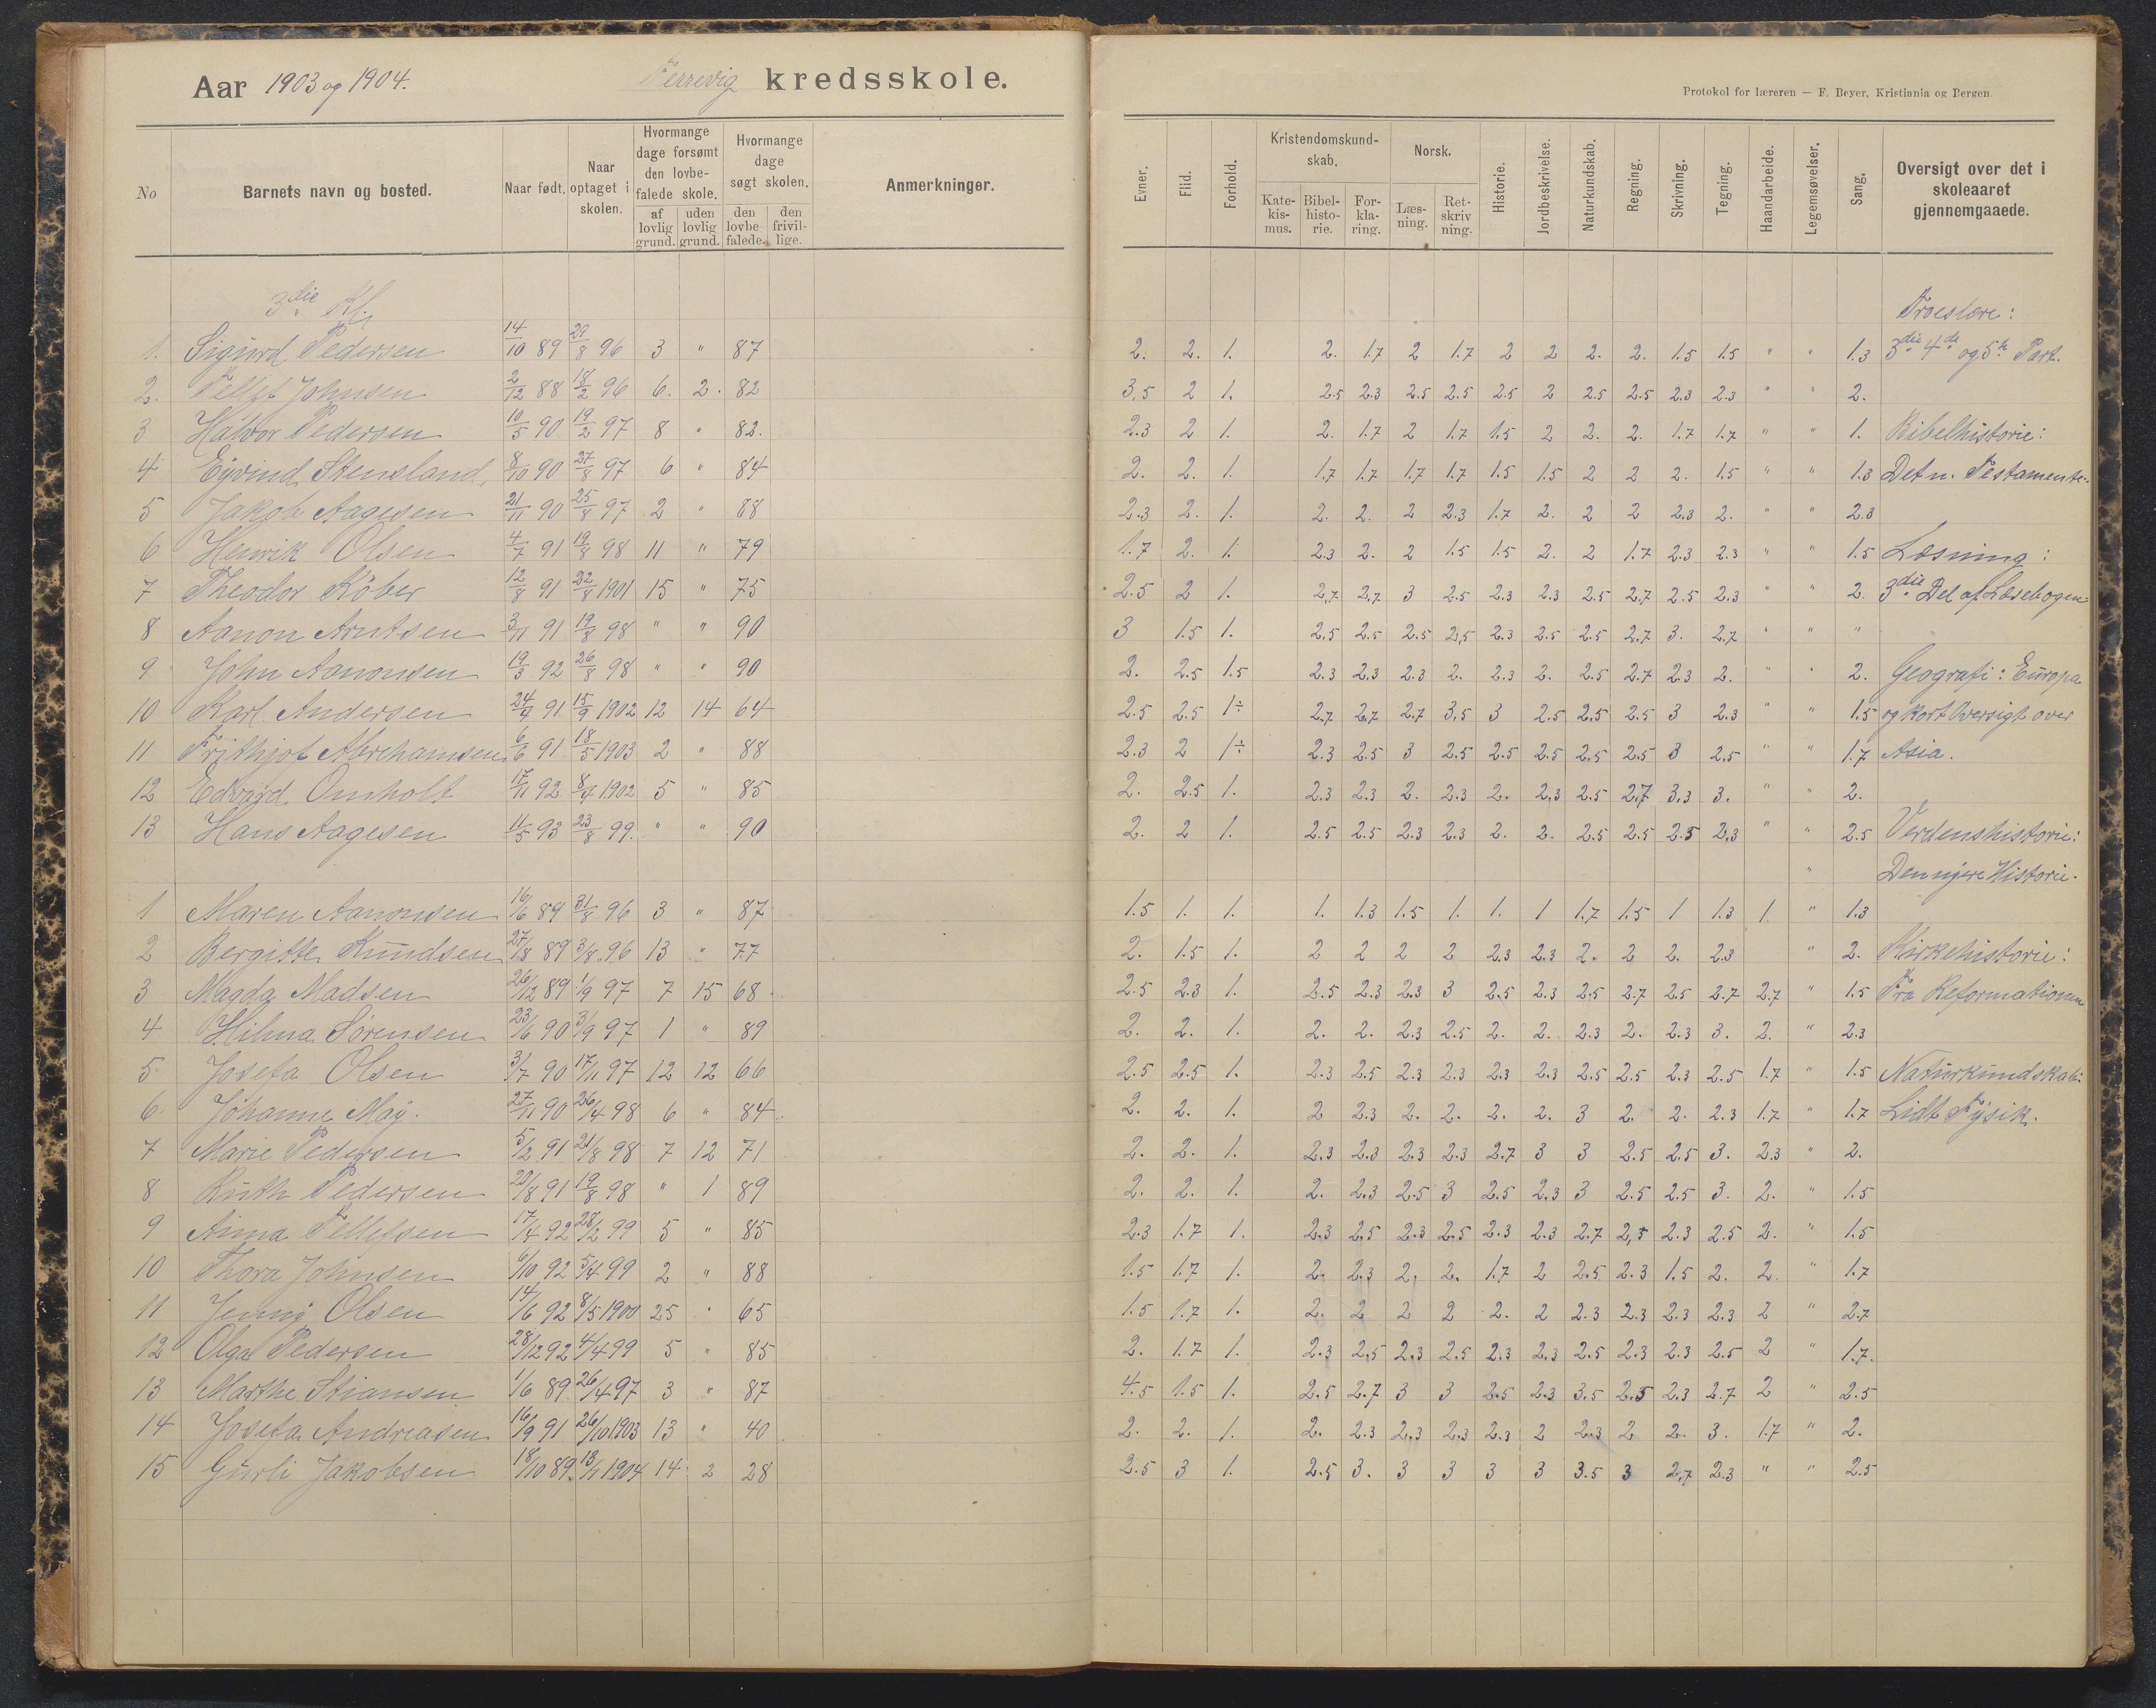 Aar 1903 og 1904. Ferrevig kredsskole.
Protokol for læreren — F. Beyer, Kristiania og Bergen.
No Barnets navn og bosted. Naar født. Naar optaget i skolen. Hvormange dage forsømt den lovbefalede skole. af lovlig grund. uden lovlig grund. Hvormange dage søgt skolen. den lovbefalede. den frivillige. Anmerkninger.
Evner. Flid. Forhold. Kristendomskundskab. Katekismus. Bibelhistorie. Forklaring. Norsk. Læsning. Retskrivning. Historie. Jordbeskrivelse. Naturkundskab. Regning. Skrivning. Tegning. Haandarbeide. Legemsøvelser. Sang. Oversigt over det i skoleaaret gjennemgaaede.
3die Kl. Troeslære:
1. Sigurd Pedersen 14/10 89 29/8 96 3 " 87 2. 2. 1. 2. 1.7 2 1.7 2 2 2. 2. 1.5 1.5 " " 1.3 3die 4de og 5te Part.
2. Tellef Johnsen 2/12 88 18/2 96 6. 2. 82 3,5 2 1. 2.5 2.3 2.5 2.5 2.5 2 2.5 2.5 2.3 2.3 " " 2.
3 Halvor Pedersen 10/5 90 19/2 97 8 " 82. 2.3 2 1. 2. 1.7 2 1.7 1.5 2 2. 2. 1.7 1.7 " " 1. Bibelhistorie:
4 Eyvind Stensland 8/10 90 27/8 97 6 " 84 2. 2. 1. 1.7 1.7 1.7 1.7 1.5 1.5 2 2 2. 1.5 " " 1.3 Det n. Testamente.
5 Jakob Aagesen 21/11 90 25/8 97 2 " 88 2.3 2. 1. 2. 2. 2 2.3 1.7 2. 2 2 2.3 2. " " 2.3
6 Henrik Olsen 4/7 91 19/8 98 11 " 79 1.7 2. 1. 2.3 2. 2 1.5 1.5 2. 2 1.7 2.3 2.3 " " 1.5 Læsning:
7 Theodor Köber 12/8 91 22/8 1901 15 " 75 2.5 2 1. 2,7 2,7 3 2.5 2.3 2.3 2.5 2,7 2.5 2.3 " " 2. 3die Del af Læsebogen
8 Aanon Arntsen 3/11 91 19/8 98 " " 90 3 1.5 1. 2,5 2.5 2.5 2,5 2.3 2.5 2.5 2.7 3. 2.7 " " "
9 John Aanonsen 19/3 92 26/8 98 " " 90 2. 2.5 1.5 2.3 2.3 2.3 2. 2.3 2. 2.5 2.7 2.3 2. " " 2. Geografi: Europa
10 Karl Andersen 24/4 91 15/9 1902 12 14 64 2.5 2.5 1÷ 2.7 2.7 2.7 3.5 3 2.5 2,5 2.5 3 2.3 " " 1.5 og kort Oversigt over
11 Frithjof Abrehamsen 6/6 91 18/5 1903 2 " 88 2.3 2 1÷ 2.3 2.5 3 2.5 2.5 2.5 2.5 2.5 3 2,5 " " 1.7 Asia.
12 Edvard Omholt 17/11 92 8/4 1902 5 " 85 2. 2.5 1. 2.3 2.3 2. 2.3 2. 2,3 2.5 2,7 3,3 3. " " 2.
13 Hans Aagesen 11/5 93 23/8 99. " " 90 2. 2 1. 2.5 2.5 2.3 2.3 2. 2. 2.5 2.5 2.5 2,3 " " 2.5 Verdenshistorie:
" Den nyere Historie.
1 Maren Aanonsen 16/6 89 31/8 96 3 " 87 1.5 1. 1. 1. 1.3 1.5 1. 1. 1 1.7 1.5 1 1.3 1. " 1.3
2 Bergitte Knudsen 27/8 89 3/8. 96 13 " 77 2. 1.5 1. 2 2 2 2 2.3 2.3 2. 2 2. 2.3 " 2. Kirkehistorie:
3 Magda Madsen 26/12 89 1/9 97 7 15 68 2.5 2.3 1. 2.5 2.3 2.3 3 2.5 2.3 2.5 2.7 2.5 2.7 2.7 " 1.5 Fra Reformationen
4 Hilma Sørensen 23/6 90 3/9 97 1 " 89 2. 2. 1. 2. 2. 2.3 2.5 2. 2. 2.3 2. 2.3 3. 2. " 2.3
5 Josefa Olsen 3/7 90 17/11 97 12 12 66 2.5 2.5 1. 2.3 2.5 2.3 2.3 2.3 2.3 2.5 2.5 2.3 2.5 1.7 " 1.5 Naturkundskab:
6. Johanne May. 27/11 90 26/4 98 6 " 84. 2. 2. 1. 2 2.3 2. 2. 2. 2. 3 2. 2. 2.3 1.7 " 1.7 Lidt Fysik.
7 Marie Pedersen 5/2 91 21/8 98 7 12 71 2. 2. 1. 2.3 2.3 2.3 2.3 2.7 3 3 2.5 2.5 3. 2.3 " 2.
8 Ruth Pedersen 20/8 91 19/8 98 " 1 89 2. 2. 1. 2. 2.3 2.5 3 2.5 2.3 3 2.5 2.5 3. 2. " 1.5
9 Anna Tellefsen 17/4 92 28/2 99 5 " 85 2.3 1.7 1. 2.3 2.5 2.3 2.5 2.3 2.3 2.7 2,5 2.3 2.5 2. " 1.5
10 Thora Johnsen 6/10 92 5/4 99 2 " 88 1.5 1.7 1. 2. 2.3 2. 2. 1.7 2 2.5 2.3 1.5 2. 2. " 1.7
11 Jenny Olsen 14/6 92 8/5 1900 25 " 65 1.5 1.7 1. 2. 2 2 2 2. 2 2.3 2.3 2.3 2.3 2 " 2.7
12 Olga Pedersen 28/12 92 4/4 99 5 " 85 2. 1.7 1. 2.3 2,5 2,3 2.5 2.3 2.3 2.5 2.3 2.3 2.5 2 " 1.7.
13 Marthe Stiansen 1/6 89. 26/4 97 3 " 87 4.5 1.5 1. 2.5 2.7 3 3 2.5 2.3 3.5 2.5 2.3 2.7 2 " 2.5
14 Josefa Andreasen 16/9 91 26/10 1903 13 " 40 2. 2. 1. 2. 2.3 2,3 2.3 2.3 2 2.3 2 2. 3. 1.7 " 2.
15 Gurli Jakobsen 18/10 89. 13/1 1904 14 2 28 2.5 3 1. 2.5 3. 3 3 3 3 3.5 3 2,7 2.3 " " 2.5